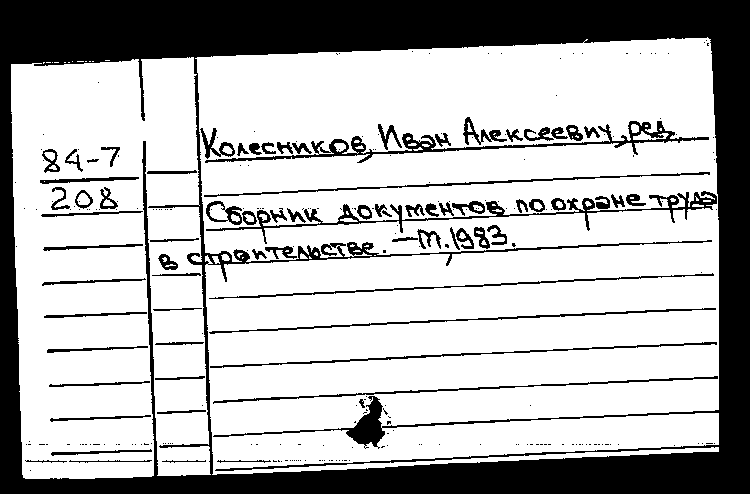 Колесников, Иван Алексеевич, ред.
84-7
208
Сборник документов по охране труда
в строительстве. — М., 1983.